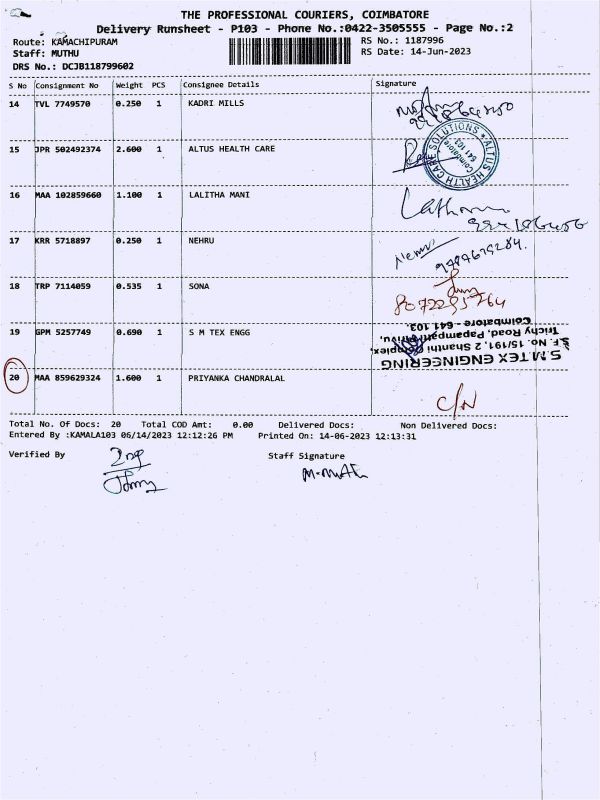 THE PROFESSIONAL COURIERS, COIMBATORE
Delivery Runsheet - P103 - Phone No.:0422-3505555 - Page No.:2
Route: KAMACHIPURAM RS No.: 1187996
Staff: MUTHU RS Date: 14-Jun-2023
DRS No.: DCJB118799602
S No Consignment No Weight PCS Consignee Details Signature
14 TVL 7749570 0.250 1 KADRI MILLS
15 JPR 502492374 2.600 1 ALTUS HEALTH CARE
ALTUS HEALTH CARE SOLUTIONS
Coimbatore
641 103
16 MAA 102859660 1.100 1 LALITHA MANI
17 KRR 5718897 0.250 1 NEHRU
18 TRP 7114059 0.535 1 SONA
8072295764
19 GPM 5257749 0.690 1 S M TEX ENGG
S.M.TEX ENGINEERING
S.F. No. 15/191, 2, Shanthi Complex,
Trichy Road, Papampatti Pirivu,
Coimbatore - 641 103.
20 MAA 859629324 1.600 1 PRIYANKA CHANDRALAL
C/N
Total No. Of Docs: 20 Total COD Amt: 0.00 Delivered Docs: Non Delivered Docs:
Entered By :KAMALA103 06/14/2023 12:12:26 PM Printed On: 14-06-2023 12:13:31
Verified By Staff Signature